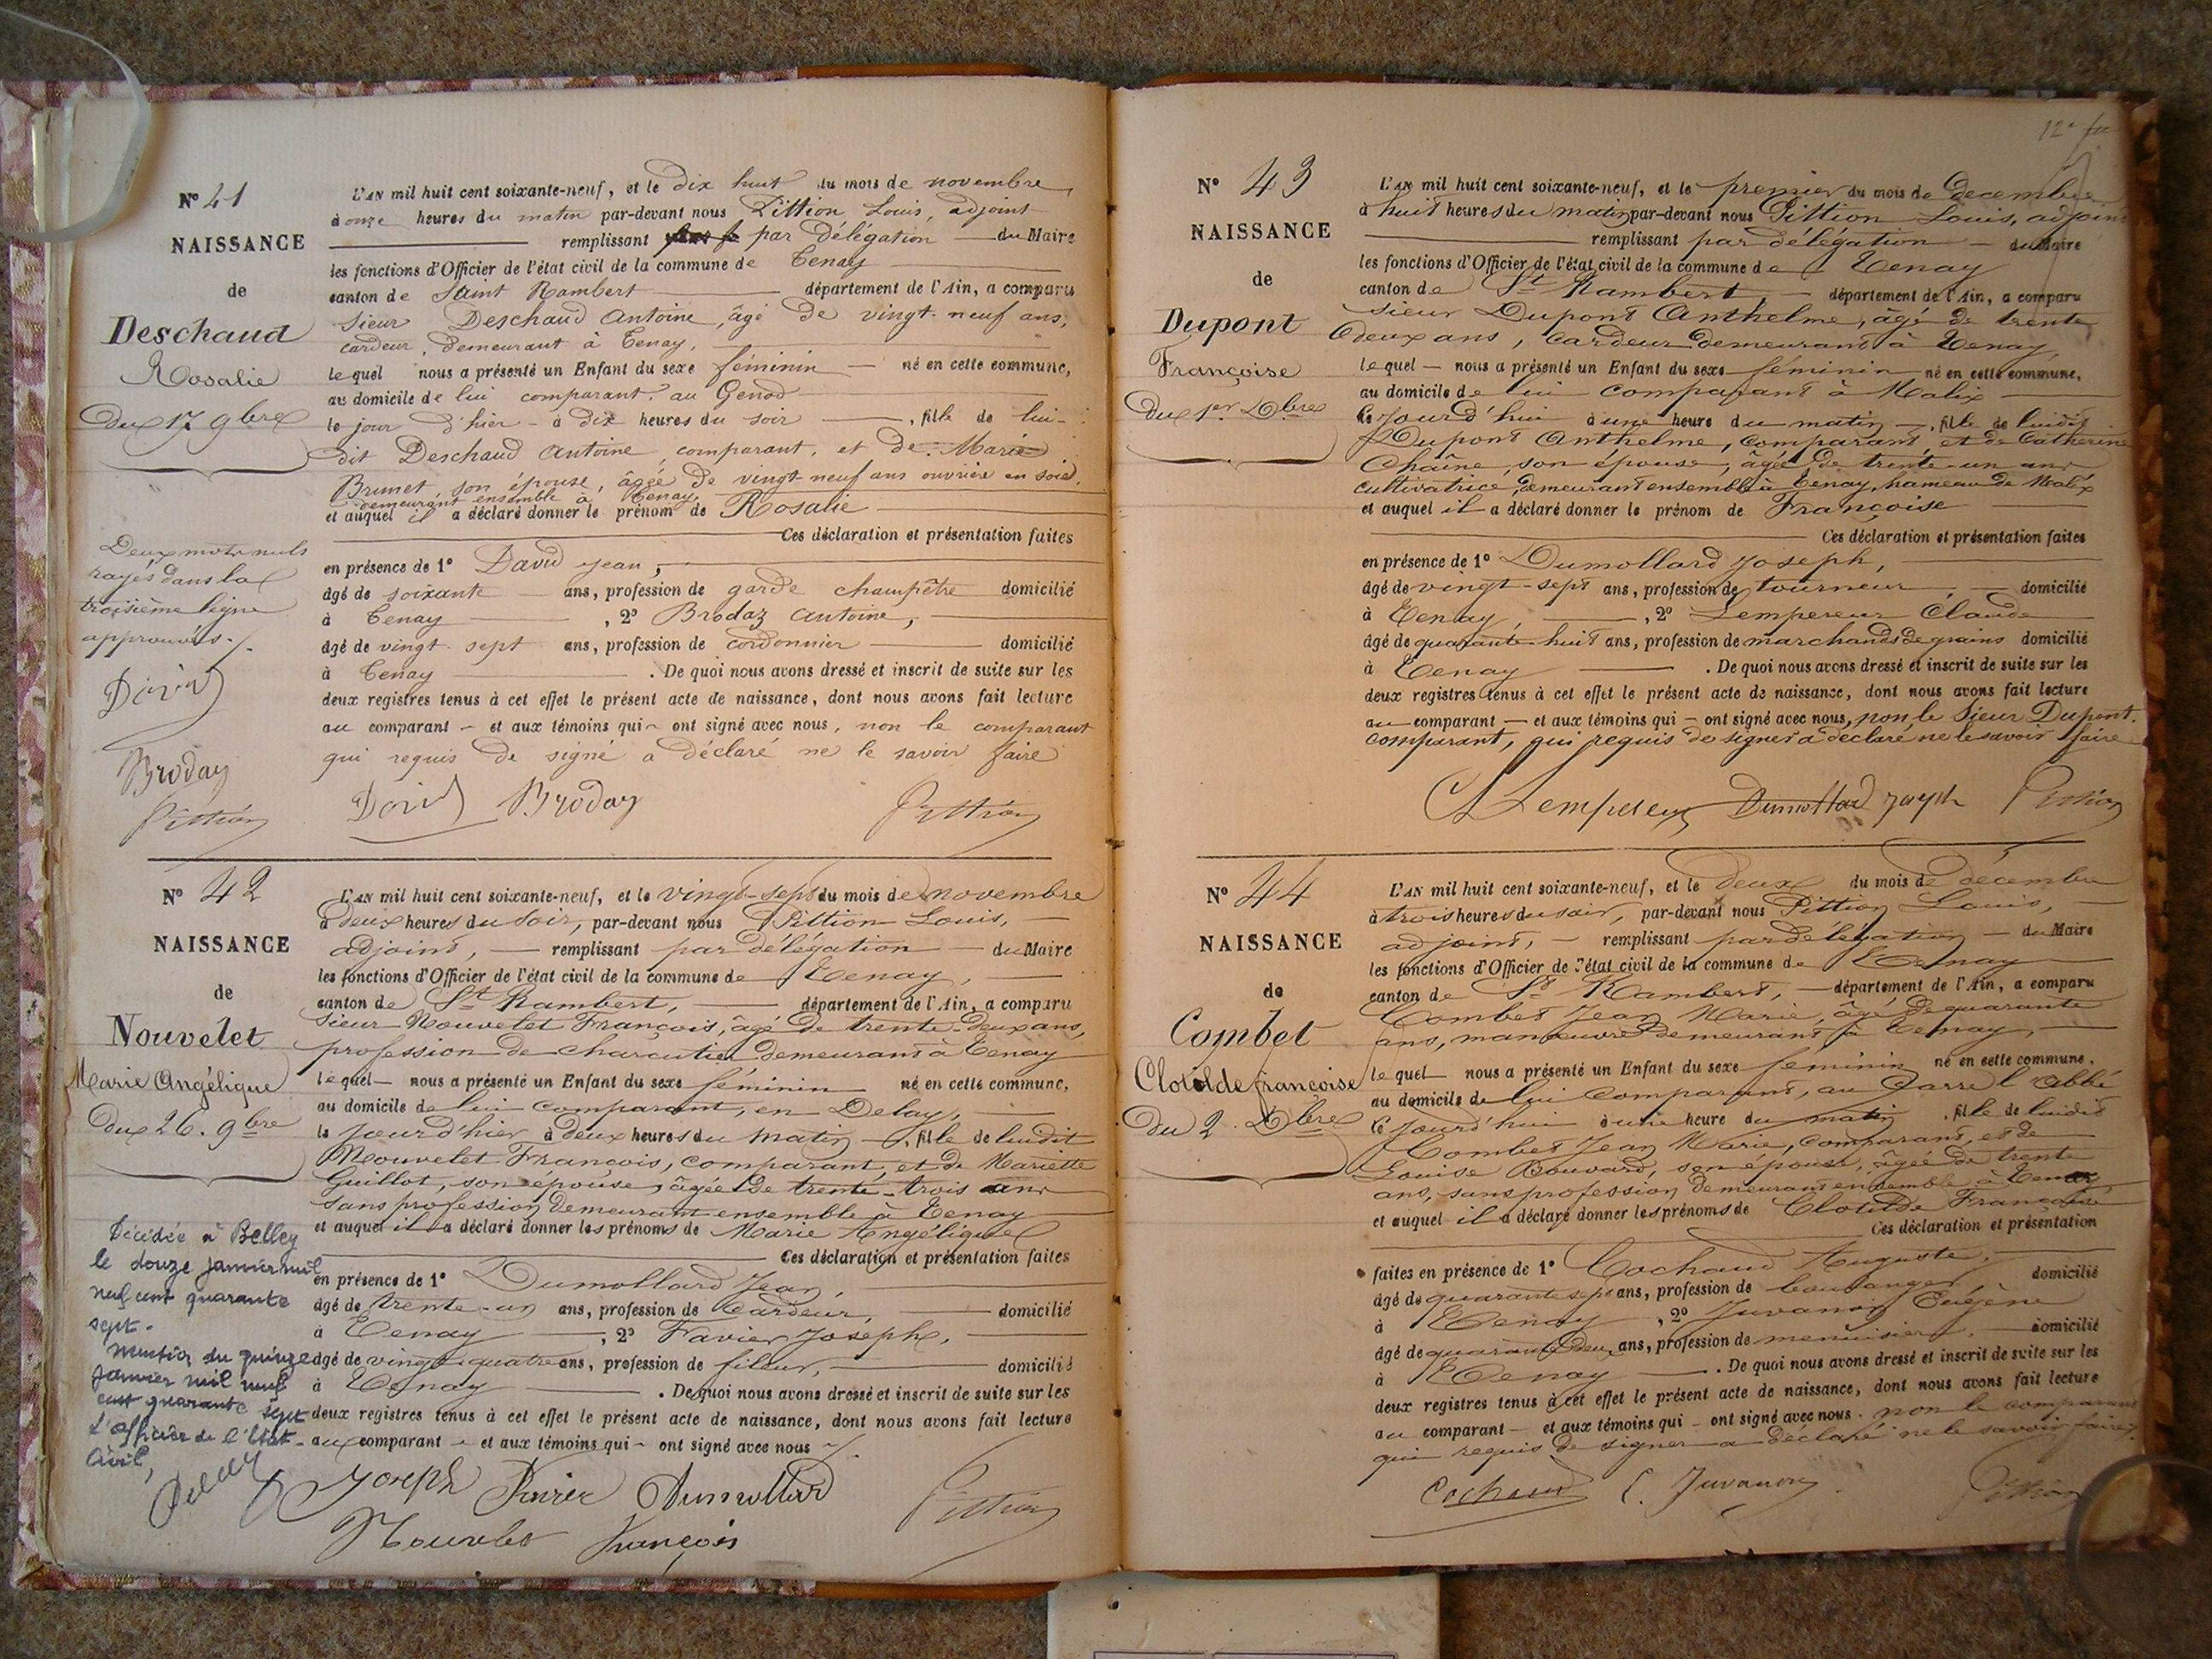 N° 41
NAISSANCE
de
Deschaud
Rosalie
Du 17 9bre
L'AN mil huit cent soixante-neuf, et le dix huit du mois de novembre
à onze heures du matin par-devant nous Pittion Louis, adjoint
remplissant par délégation du Maire
les fonctions d'Officier de l'état civil de la commune de Tenay
canton de Saint Rambert département de l'Ain, a comparu
sieur Deschaud Antoine, âgé de vingt-neuf ans,
cardeur, demeurant à Tenay,
lequel nous a présenté un Enfant du sexe féminin né en cette commune,
au domicile de lui comparant, au Genod
le jour d'hier à dix heures du soir, fille de lui-
dit Deschaud Antoine, comparant, et de Marie
Brunet, son épouse, âgée de vingt-neuf ans ouvrière en soie,
demeurant ensemble à Tenay,
et auquel il a déclaré donner le prénom de Rosalie
Ces déclaration et présentation faites
en présence de 1° David Jean,
âgé de soixante ans, profession de garde champêtre domicilié
à Tenay, 2° Brodaz Antoine,
âgé de vingt-sept ans, profession de cordonnier domicilié
à Tenay. De quoi nous avons dressé et inscrit de suite sur les
deux registres tenus à cet effet le présent acte de naissance, dont nous avons fait lecture
au comparant et aux témoins qui ont signé avec nous, non le comparant
qui requis de signé a déclaré ne le savoir faire
Deux mots nuls
rayés dans la
troisième ligne
approuvés./.
David
Broday
Pittion
David Broday Pittion
N° 42
NAISSANCE
de
Nouvelet
Marie Angélique
Du 26. 9bre
L'AN mil huit cent soixante-neuf, et le vingt-sept du mois de novembre
à deux heures du soir, par-devant nous Pittion Louis,
adjoint, remplissant par délégation du Maire
les fonctions d'Officier de l'état civil de la commune de Tenay,
canton de St Rambert, département de l'Ain, a comparu
sieur Nouvelet François, âgé de trente-deux ans,
profession de charcutier demeurant à Tenay
lequel nous a présenté un Enfant du sexe féminin né en cette commune,
au domicile de lui comparant, en Delay,
le jour d'hier à deux heures du matin, fille de luidit
Nouvelet François, comparant, et de Mariette
Guillot, son épouse, âgée de trente-trois ans
sans profession demeurant ensemble à Tenay
et auquel il a déclaré donner les prénoms de Marie Angélique
Ces déclaration et présentation faites
en présence de 1° Dumollard Jean,
âgé de trente-un ans, profession de Cardeur, domicilié
à Tenay, 2° Favier Joseph,
âgé de vingt-quatre ans, profession de fileur, domicilié
à Tenay. De quoi nous avons dressé et inscrit de suite sur les
deux registres tenus à cet effet le présent acte de naissance, dont nous avons fait lecture
aux comparant et aux témoins qui ont signé avec nous ./.
Décédée à Belley
le douze janvier mil
neuf cent quarante
sept.
Mention du quinze
janvier mil neuf
cent quarante sept
L'officier de l'Etat-
Civil,
Joseph Favier Dumollard
Nouvelet François Pittion
N° 43
NAISSANCE
de
Dupont
Françoise
Du 1er Dbre
L'AN mil huit cent soixante-neuf, et le premier du mois de décembre
à huit heures du matin par-devant nous Pittion Louis, adjoint
remplissant par délégation du Maire
les fonctions d'Officier de l'état civil de la commune de Tenay
canton de St Rambert, département de l'Ain, a comparu
sieur Dupont Anthelme, âgé de trente
deux ans, Cardeur demeurant à Tenay,
lequel nous a présenté un Enfant du sexe féminin né en cette commune,
au domicile de lui comparant à Malix
le jourd'hui à une heure du matin, fille de luidit
Dupont Anthelme, comparant, et de Catherine
Chaîne, son épouse, âgée de trente-un ans
cultivatrice, demeurant ensemble à Tenay, hameau de Malix
et auquel il a déclaré donner le prénom de Françoise
Ces déclaration et présentation faites
en présence de 1° Dumollard Joseph,
âgé de vingt-sept ans, profession de tourneur, domicilié
à Tenay, 2° Lempereur Claude
âgé de quarante-huit ans, profession de marchand de grains domicilié
à Tenay. De quoi nous avons dressé et inscrit de suite sur les
deux registres tenus à cet effet le présent acte de naissance, dont nous avons fait lecture
au comparant et aux témoins qui ont signé avec nous, non le Sieur Dupont.
comparant, qui requis de signer a déclaré ne le savoir faire
C Lempereur Dumollard joseph Pittion
N° 44
NAISSANCE
de
Combet
Clotilde françoise
Du 2. Dbre
L'AN mil huit cent soixante-neuf, et le deux du mois de décembre
à trois heures du soir, par-devant nous Pittion Louis,
adjoint, remplissant par délégation du Maire
les fonctions d'Officier de l'état civil de la commune de Tenay
canton de St Rambert, département de l'Ain, a comparu
Combet Jean Marie, âgé de quarante
ans, manœuvre demeurant à Tenay,
lequel nous a présenté un Enfant du sexe féminin né en cette commune,
au domicile de lui comparant, au l'abbé
le jourd'hui à une heure du matin, fille de luidit
Combet Jean Marie, comparant, et de
Louise Bouvard, son épouse, âgée de trente
ans, sans profession demeurant ensemble à Tenay
et auquel il a déclaré donner les prénoms de Clotilde Françoise
Ces déclaration et présentation
faites en présence de 1° Cochaud Auguste,
âgé de quarante sept ans, profession de boulanger, domicilié
à Tenay, 2° Juvanon Eugène
âgé de quarante deux ans, profession de menuisier, domicilié
à Tenay. De quoi nous avons dressé et inscrit de suite sur les
deux registres tenus à cet effet le présent acte de naissance, dont nous avons fait lecture
au comparant et aux témoins qui ont signé avec nous. non le comparant
qui requis de signer a déclaré ne le savoir faire./.
Cochaud E. Juvanon Pittion